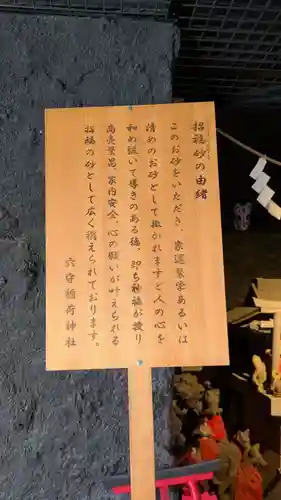 招福砂の由緒
このお砂をいただき、家運繁栄あるいは
清めのお砂として撒かれますと心を
和め統いて導きのある徳、即ち神福が授り
商売繁昌、家内安全、心の願いが叶えられる
招福の砂として広く称えられております。
穴守稲荷神社